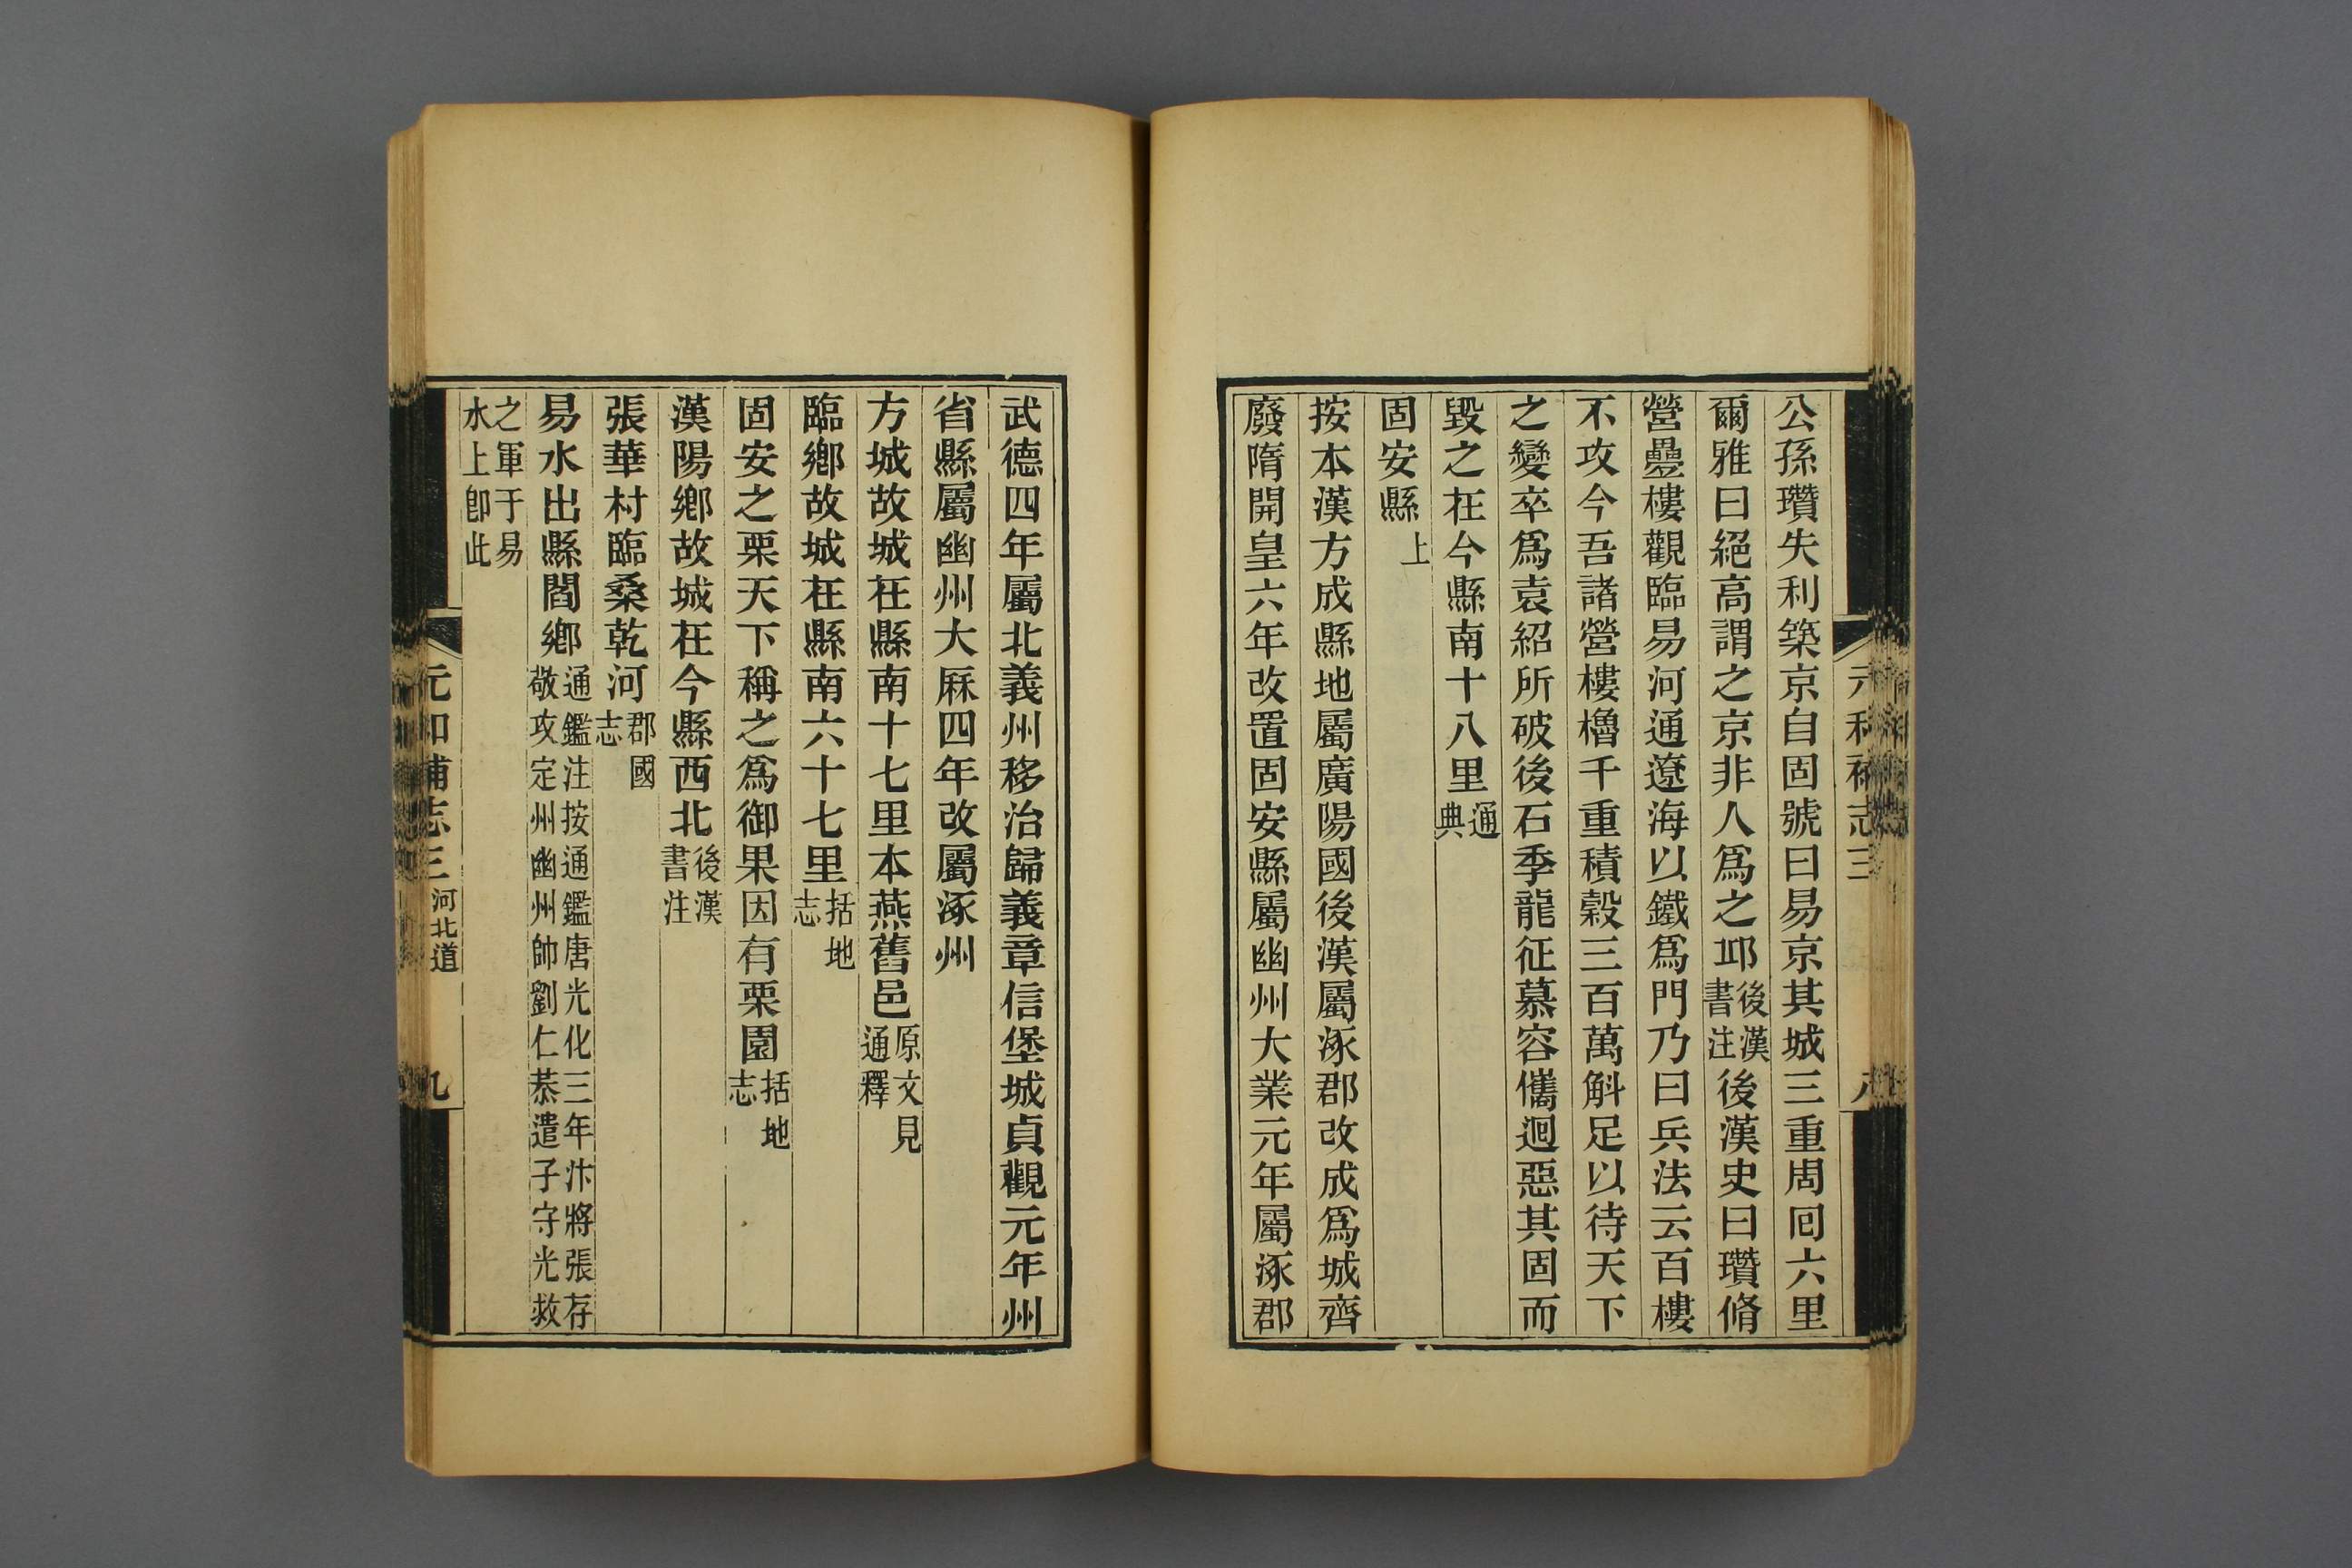 公孫瓚失利築京自固號曰易京其城三重周囘六里
爾雅曰絕高謂之京非人爲之邱後漢書注後漢史曰瓚脩
營壘樓觀臨易河通遼海以鐵爲門乃曰兵法云百樓
不攻今吾諸營樓櫓千重積穀三百萬斛足以待天下
之變卒爲袁紹所破後石季龍征慕容儁迴惡其固而
毀之在今縣南十八里通典
固安縣上
按本漢方成縣地屬廣陽國後漢屬涿郡改成爲城齊
廢隋開皇六年改置固安縣屬幽州大業元年屬涿郡
元和補志三
武德四年屬北義州移治歸義章信堡城貞觀元年州
省縣屬幽州大厤四年改屬涿州
方城故城在縣南十七里本燕舊邑原文見通釋
臨鄉故城在縣南六十七里括地志
固安之栗天下稱之爲御果因有栗園括地志
漢陽鄉故城在今縣西北後漢書注
張華村臨桑乾河郡國志
易水出縣閻鄉通鑑注按通鑑唐光化三年汴將張存敬攻定州幽州帥劉仁恭遣子守光救
之軍于易水上卽此
元和補志三 河北道 九